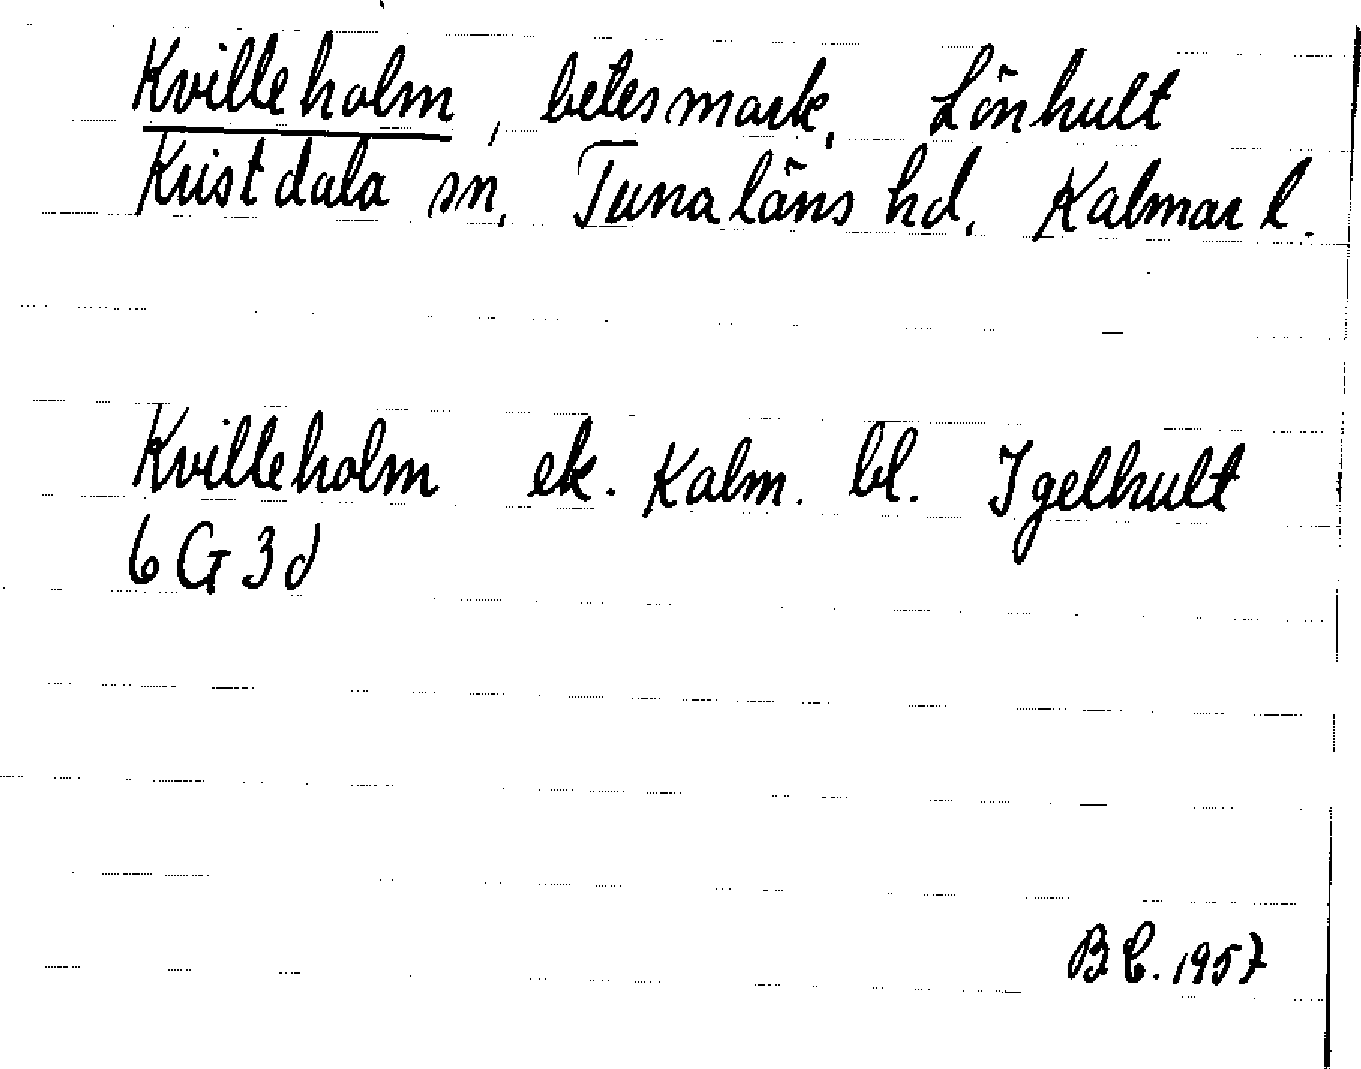 Kvilleholm, betesmark, Lönhult
Kristdala sn. Tunaläns hd. Kalmar l.
Kvilleholm ek. Kalm. bl. Igelhult
6G3d
B.C. 1957